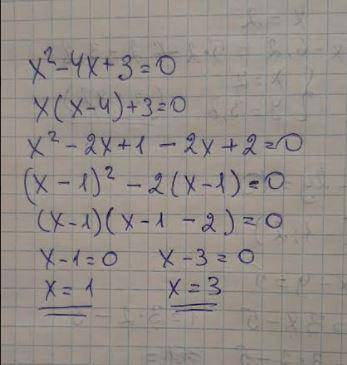 x² - 4x + 3 = 0
x(x-4) + 3 = 0
x² - 2x + 1 - 2x + 2 = 0
(x - 1)² - 2(x-1) = 0
(x-1)(x-1 - 2) = 0
x-1 = 0 x - 3 = 0
x = 1 x = 3